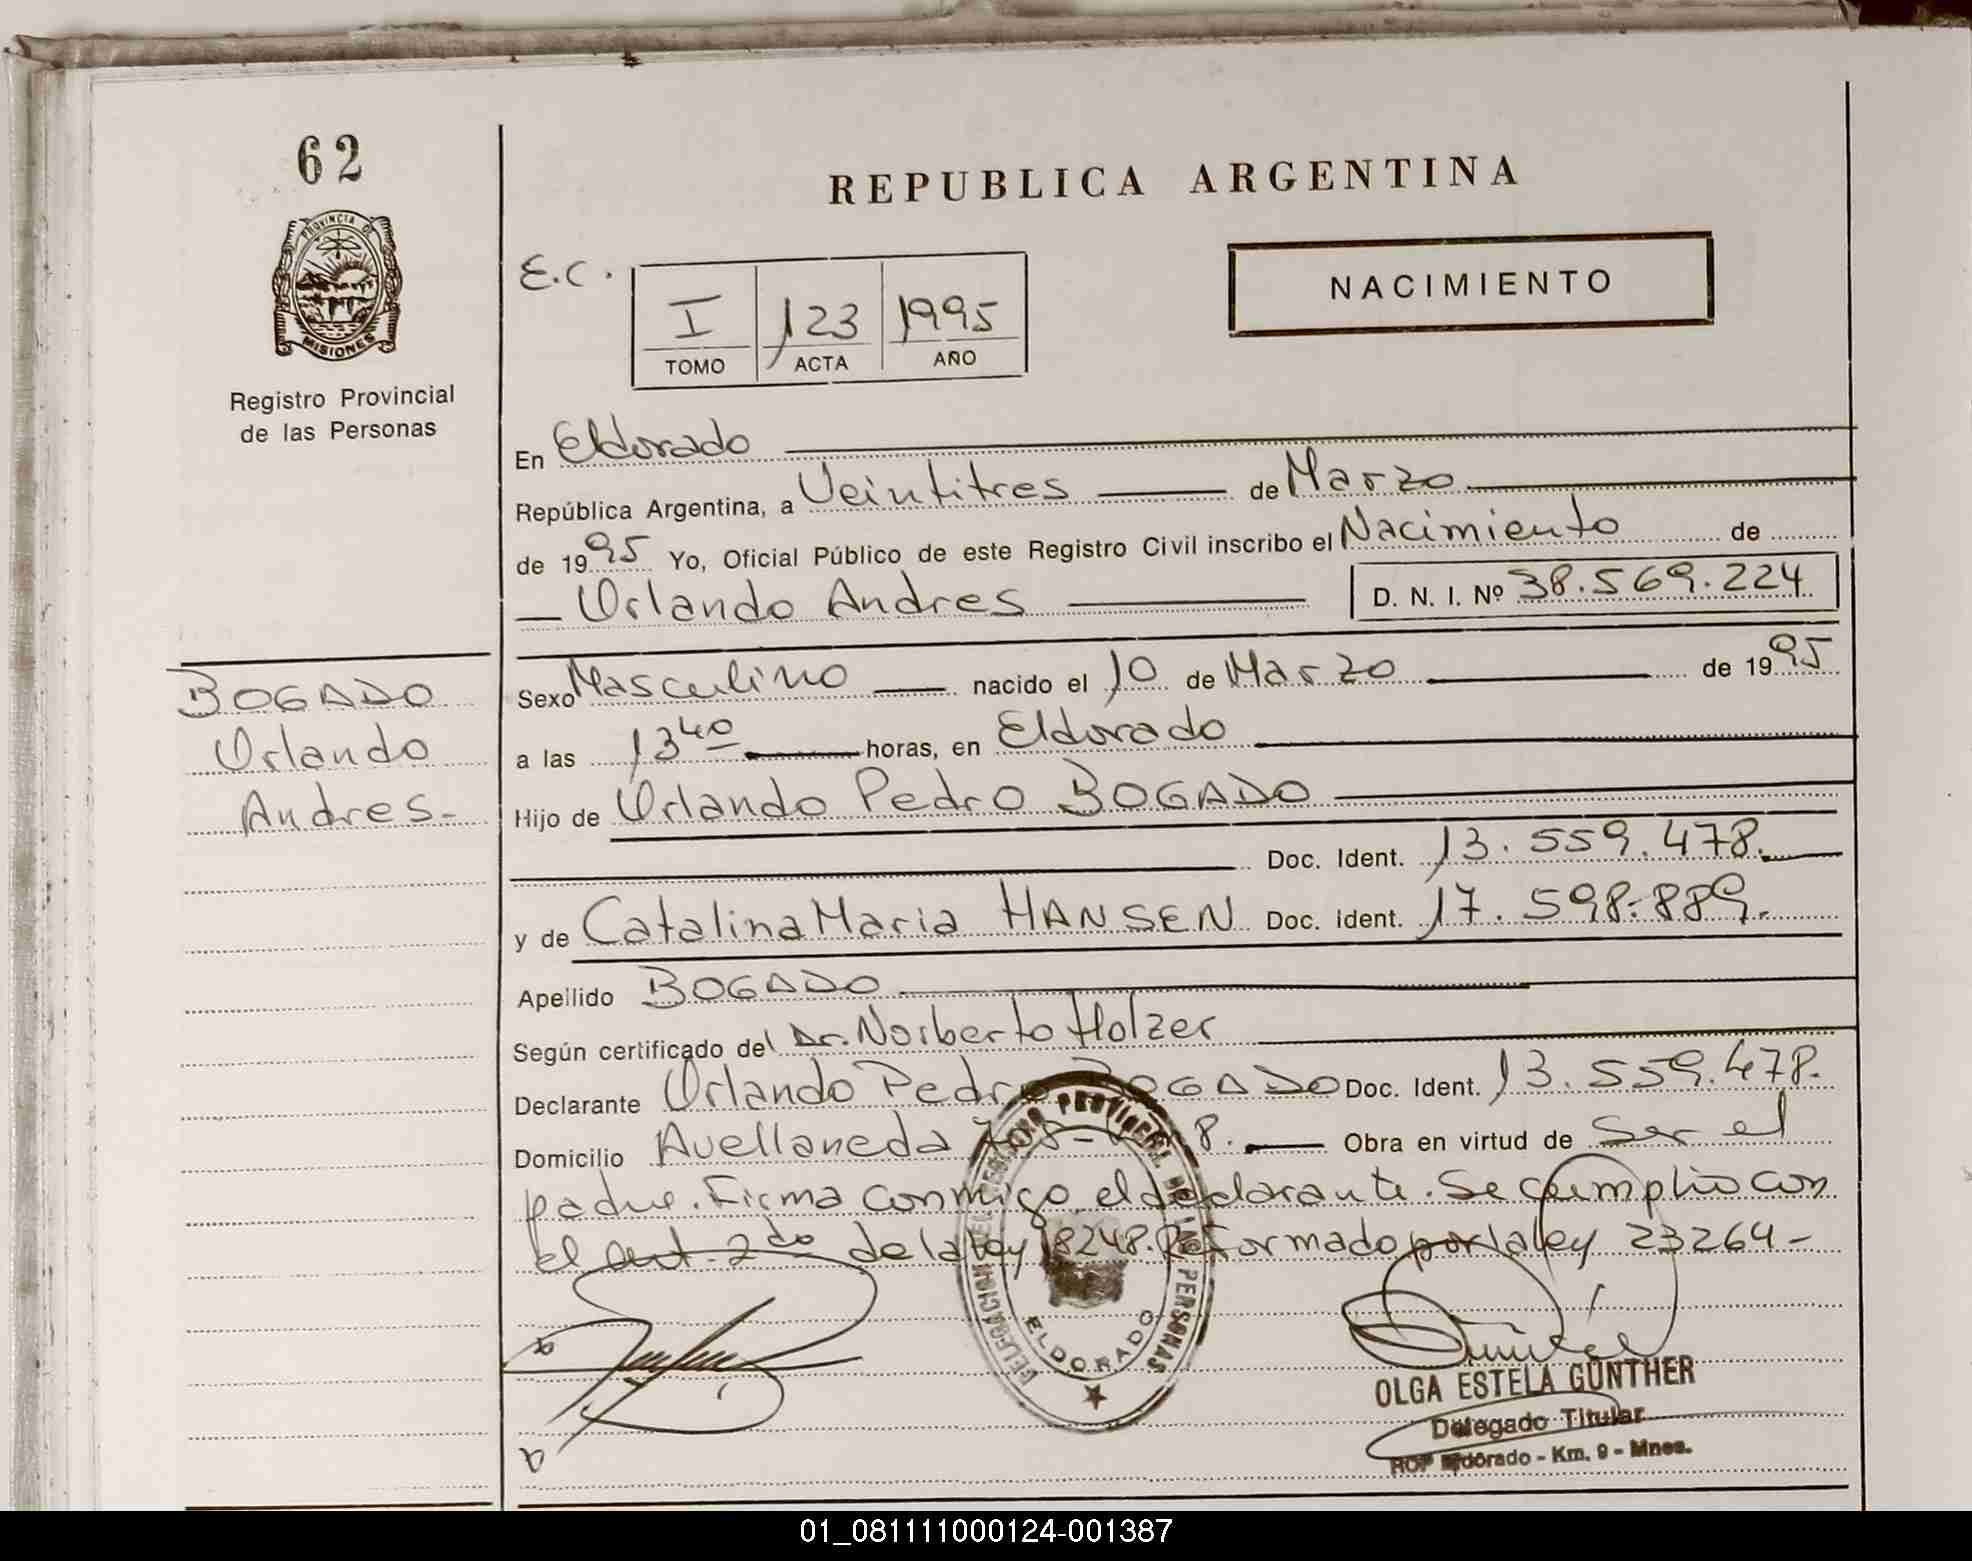 62
REPUBLICA ARGENTINA
PROVINCIA DE
MISIONES
Registro Provincial
de las Personas
E.C.
I 123 1995
TOMO ACTA AÑO
NACIMIENTO
En Eldorado
República Argentina, a Veintitres de Marzo
de 1995 Yo, Oficial Público de este Registro Civil inscribo el Nacimiento de
Orlando Andres D. N. I. Nº 38.569.224
BOGADO
Orlando
Andres-
Sexo Masculino nacido el 10 de Marzo de 1995
a las 13 40 horas, en Eldorado
Hijo de Orlando Pedro BOGADO
Doc. Ident. 13.559.478.
y de Catalina Maria HANSEN Doc. Ident. 17.598.889.
Apellido BOGADO
Según certificado del Dr. Norberto Holzer
Declarante Orlando Pedro BOGADO Doc. Ident. 13.559.478.
Domicilio Avellaneda 8. Obra en virtud de Ser el
padre. Firma conmigo el declarante. Se cumplio con
el art. 2do de la ley 18248. Reformado por la ley 23264-
DELEGACION DEL REGISTRO PROVINCIAL DE LAS PERSONAS
ELDORADO
OLGA ESTELA GÜNTHER
Delegado Titular
RCP Eldorado - Km. 9 - Mnes.
01_081111000124-001387